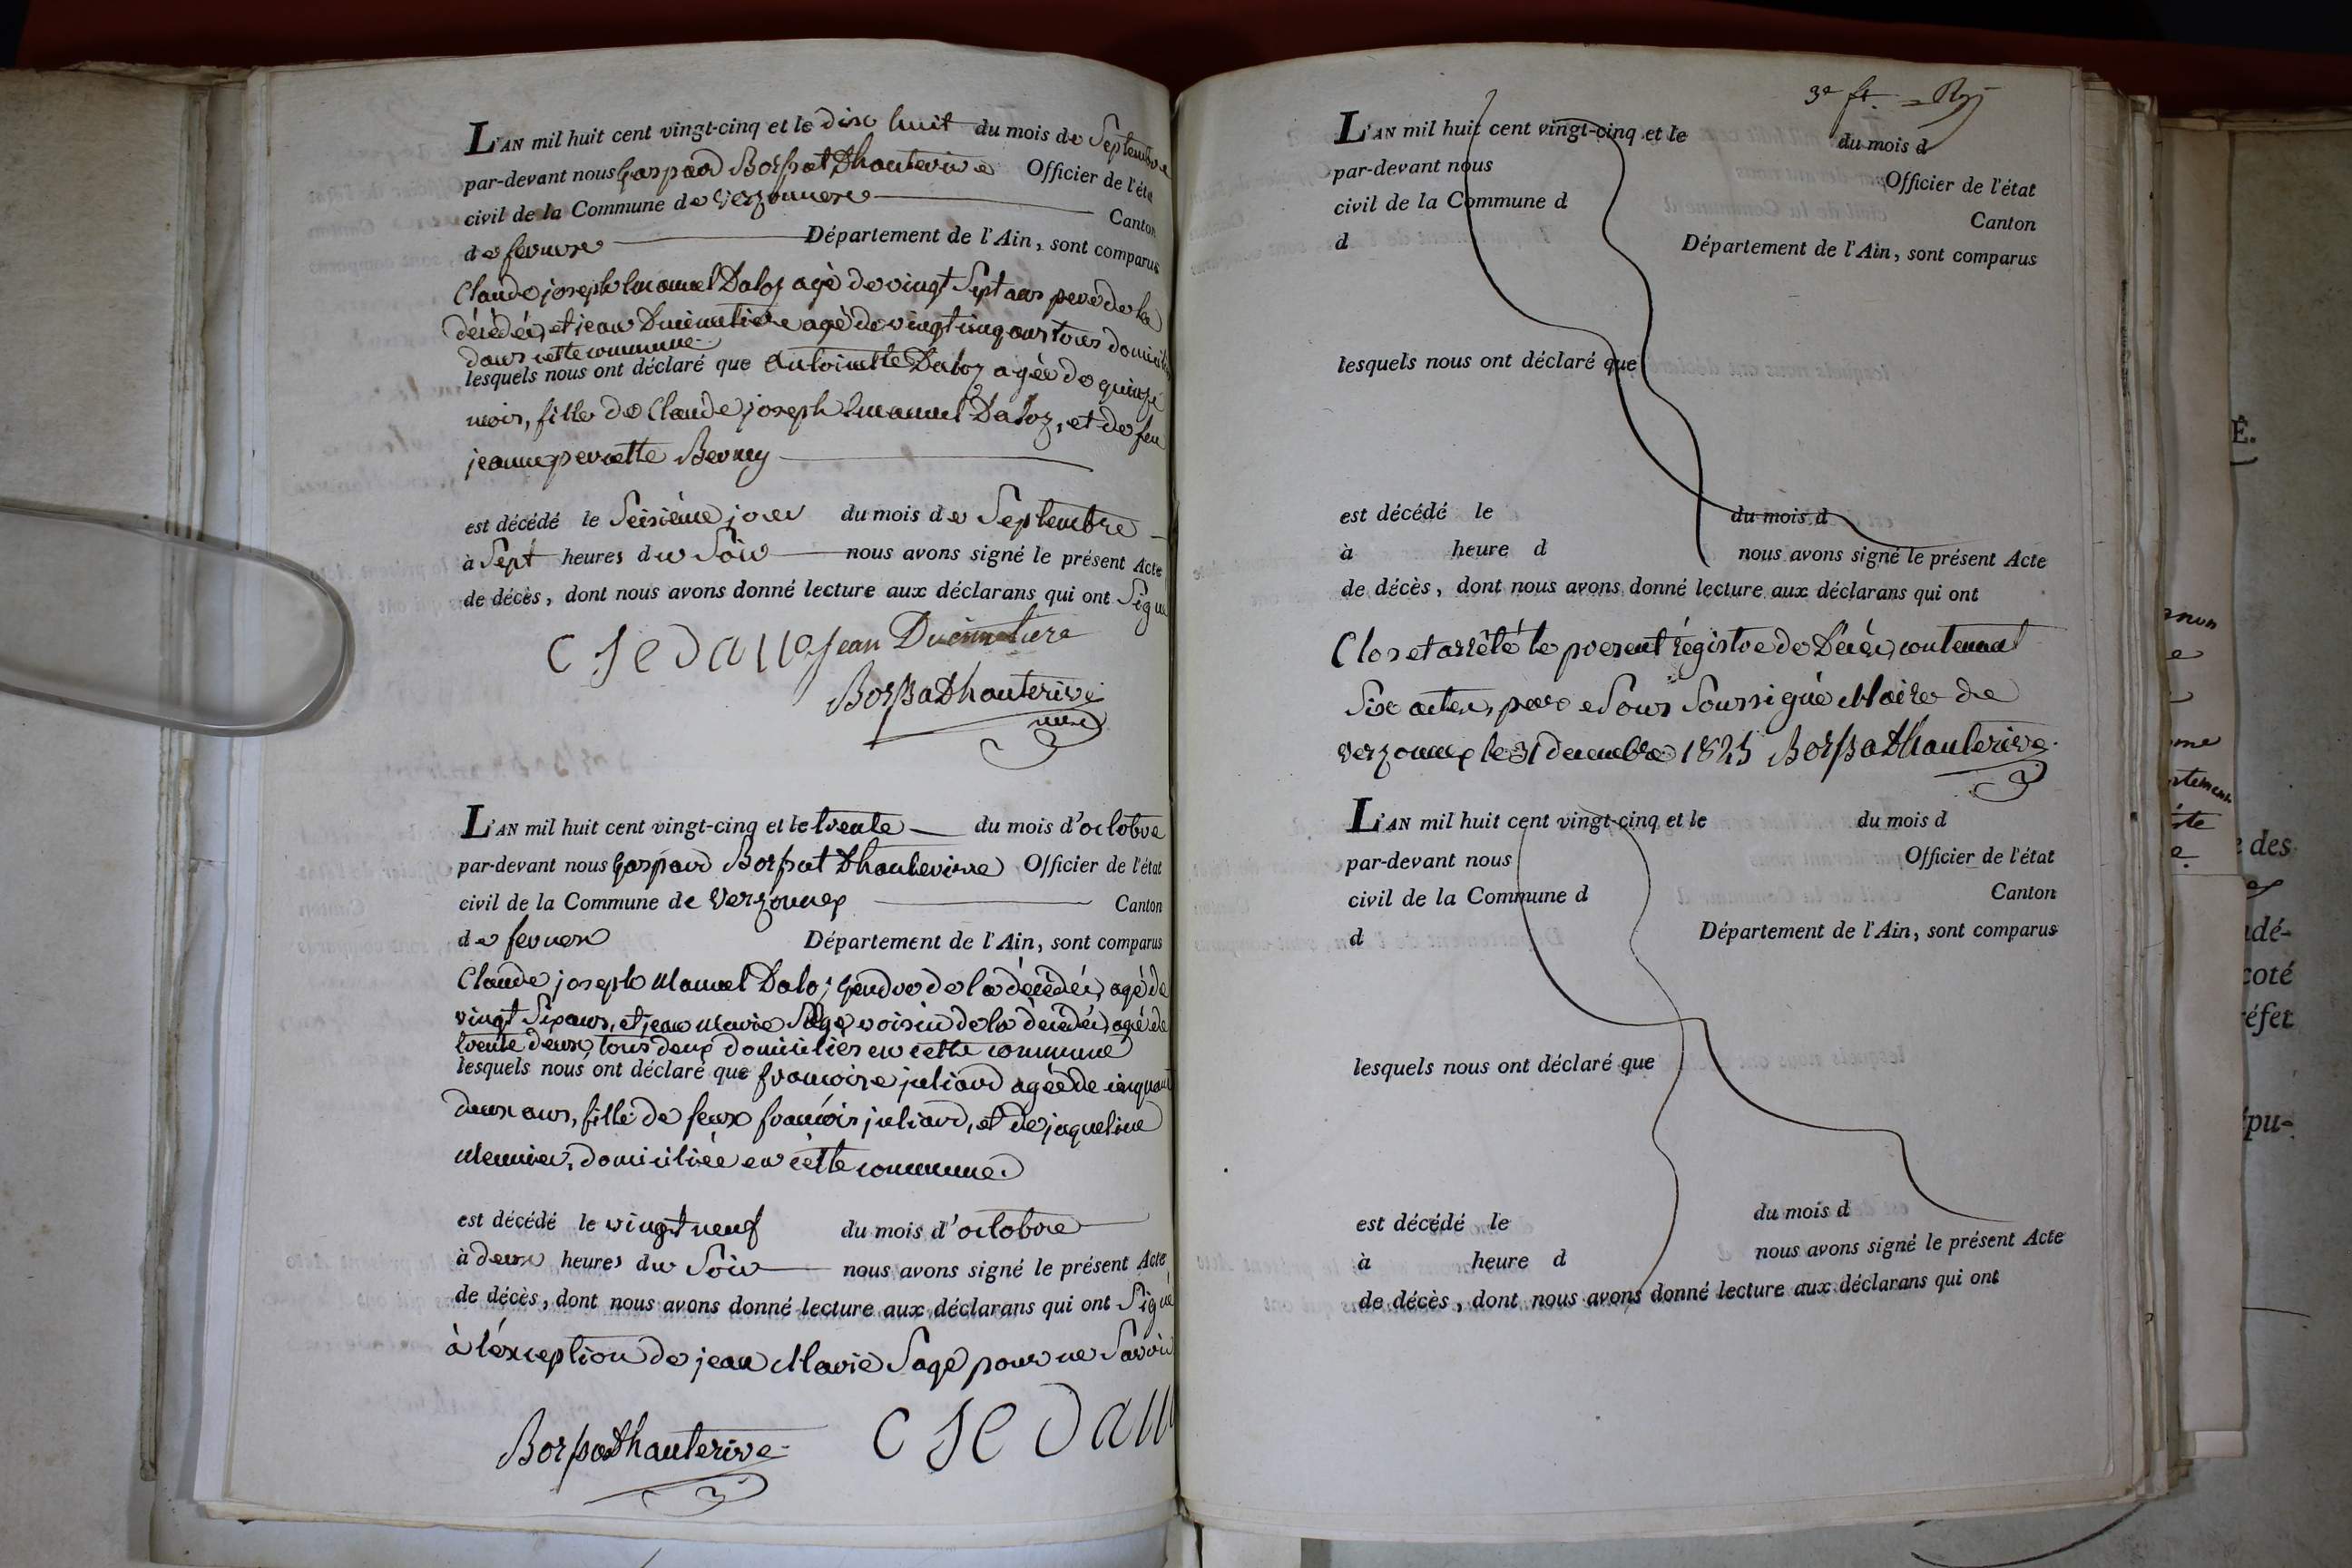 L'AN mil huit cent vingt-cinq et le dixhuit du mois de Septembre
par-devant nous Gaspard Borssat Dhauterive Officier de l'éta
civil de la Commune de Verzonnex Canton
de fernex Département de l'Ain, sont comparus
Claude joseph Emanuel Daloz agé de vingt Sept ans pere de la
décédée, et jean Ducimetiere agé de vingt cinq ans tous domicilié
dans cette commune
lesquels nous ont déclaré que Antoinette Daloz agée de quinze
mois, fille de Claude joseph Emanuel Daloz, et de feu
jeanne perrette
est décédé le Seisième jour du mois de Septembre
à Sept heures du Soir nous avons signé le présent Acte
de décès, dont nous avons donné lecture aux déclarans qui ont Signé
Jean Ducimetiere
BorssaDhauterive
maire
L'AN mil huit cent vingt-cinq et le trente du mois d'octobre
par-devant nous Gaspard Borssat Dhauterive Officier de l'état
civil de la Commune de Verzonnex Canton
de fernex Département de l'Ain, sont comparus
Claude joseph Manuel Daloz gendre de la décédée, agé de
vingt Six ans, et jean Marie Sage voisin de la décédée agé de
trente deux, tous deux domiciliés en cette commune
lesquels nous ont déclaré que françoise juliard agée de cinquant
deux ans, fille de feux françois juliard, et de jaqueline
Meunier, domiciliée en cette commune
est décédé le vingt neuf du mois d'octobre
à deux heures du Soir nous avons signé le présent Acte
de décès, dont nous avons donné lecture aux déclarans qui ont Signé
à l'éxception de jean Marie Sage pour ne Savoir
BorssaDhauterive
3e ft.
L'AN mil huit cent vingt-cinq et le du mois d
par-devant nous Officier de l'état
civil de la Commune d Canton
d Département de l'Ain, sont comparus
lesquels nous ont déclaré que
est décédé le du mois d
à heure d nous avons signé le présent Acte
de décès, dont nous avons donné lecture aux déclarans qui ont
Clos et arrêté le present régistre de Décès, contenant
Six actes, par Soussigné Maire de
Verzonnex le 31 decembre 1825 BorssaDhauterive
L'AN mil huit cent vingt-cinq et le du mois d
par-devant nous Officier de l'état
civil de la Commune d Canton
d Département de l'Ain, sont comparus
lesquels nous ont déclaré que
est décédé le du mois d
à heure d nous avons signé le présent Acte
de décès, dont nous avons donné lecture aux déclarans qui ont